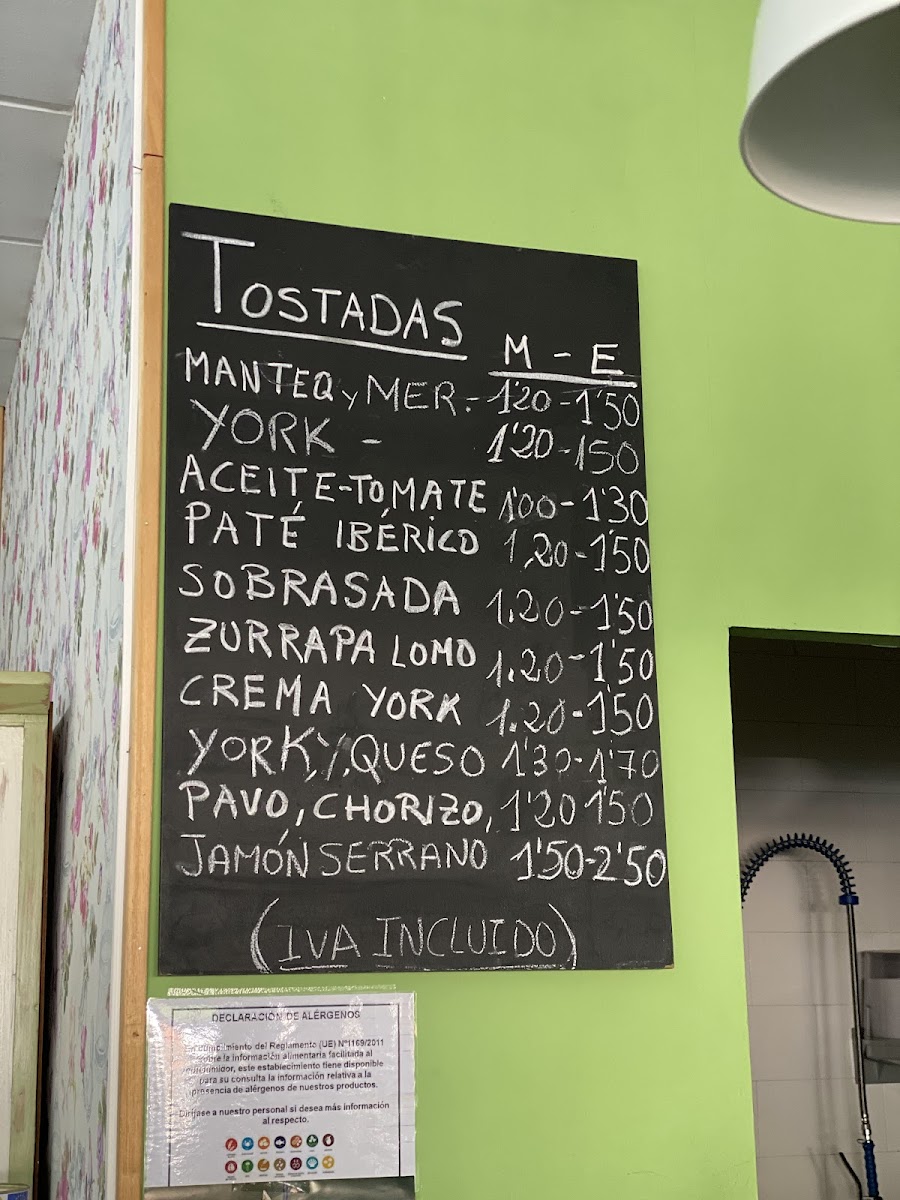 TOSTADAS
M - E
MANTEQ y MER.- 1'20-1'50
YORK - 1'20-150
ACEITE-TOMATE 1'00-1'30
PATÉ IBÉRICO 1,20-1'50
SOBRASADA 1.20-1'50
ZURRAPA LOMO 1.20-1'50
CREMA YORK 1.20-1'50
YORK,Y,QUESO 1'30-1'70
PAVO, CHORIZO, 1'20 1'50
JAMÓN SERRANO 1'50-2'50
(IVA INCLUIDO)
DECLARACIÓN DE ALÉRGENOS
En cumplimiento del Reglamento (UE) Nº1169/2011
sobre la información alimentaria facilitada al
consumidor, este establecimiento tiene disponible
para su consulta la información relativa a la
presencia de alérgenos de nuestros productos.
Diríjase a nuestro personal si desea más información
al respecto.